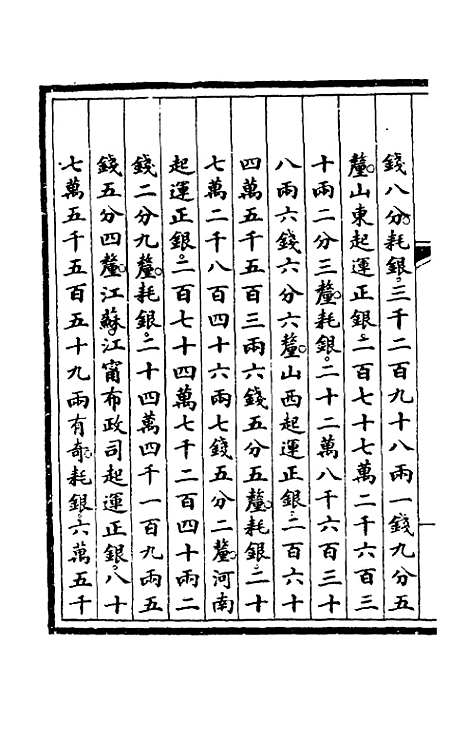 錢八分。耗銀。三千二百九十八兩一錢九分五
釐。山東起運正銀。二百七十七萬二千六百三
十兩二分三釐。耗銀。二十二萬八千六百三十
八兩六錢六分六釐。山西起運正銀。二百六十
四萬五千五百三兩六錢五分五釐。耗銀。二十
七萬二千八百四十六兩七錢五分二釐。河南
起運正銀。二百七十四萬七千二百四十兩二
錢二分九釐。耗銀。二十四萬四千一百九兩五
錢五分四釐。江蘇。江甯布政司起運正銀。八十
七萬五千五百五十九兩有奇。耗銀。六萬五千